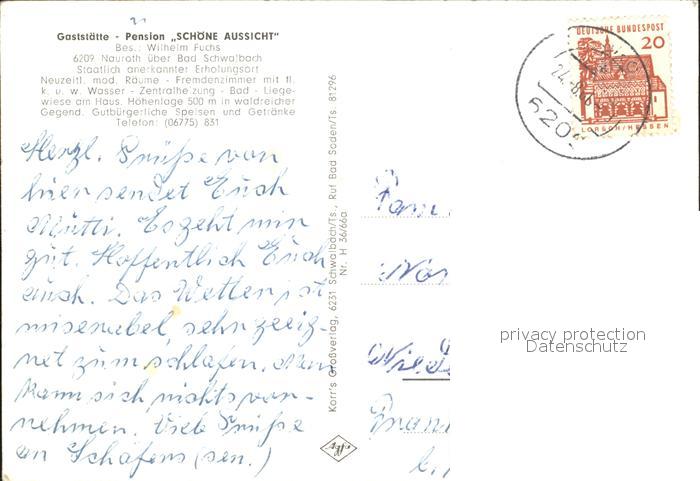 Gaststätte - Pension „SCHÖNE AUSSICHT"
Bes.: Wilhelm Fuchs
6209 Nauroth über Bad Schwalbach
Staatlich anerkannter Erholungsort
Neuzeitl. mod. Räume - Fremdenzimmer mit fl.
k. u. w. Wasser - Zentralheizung - Bad - Liege-
wiese am Haus. Höhenlage 500 m in waldreicher
Gegend. Gutbürgerliche Speisen und Getränke
Telefon: (06775) 831
Herzl. Grüße von
hier sendet Euch
Mutti. Es geht mir
gut. Hoffentlich Euch
auch. Das Wetter ist
miserabel, sehr geeig-
net zum schlafen. Man
kann sich nichts vor-
nehmen. Viele Grüße
an Schäfers (sen.)
Korr's Großverlag, 6231 Schwalbach/Ts., Ruf Bad Soden/Ts. 81296
Nr. H 36/66a
DEUTSCHE BUNDESPOST
20
LORSCH/HESSEN
Fam
privacy protection
Datenschutz